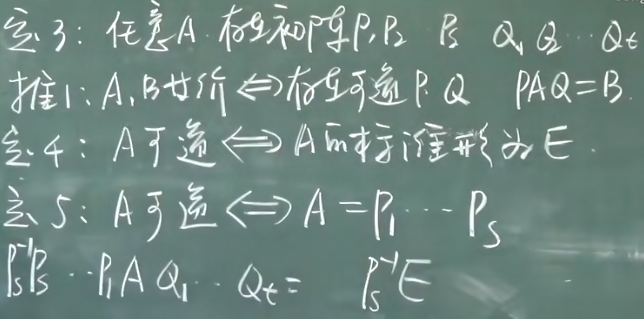 定3：任意A 存在初阵P₁P₂ Pₛ Q₁Q₂…Qₜ
推1：A,B等价⟺存在可逆P.Q PAQ=B.
定4：A可逆⟺A的标准形为E.
定5：A可逆⟺A=P₁…Pₛ
Pₛ⁻¹Pₛ…P₁AQ₁…Qₜ= Pₛ⁻¹E